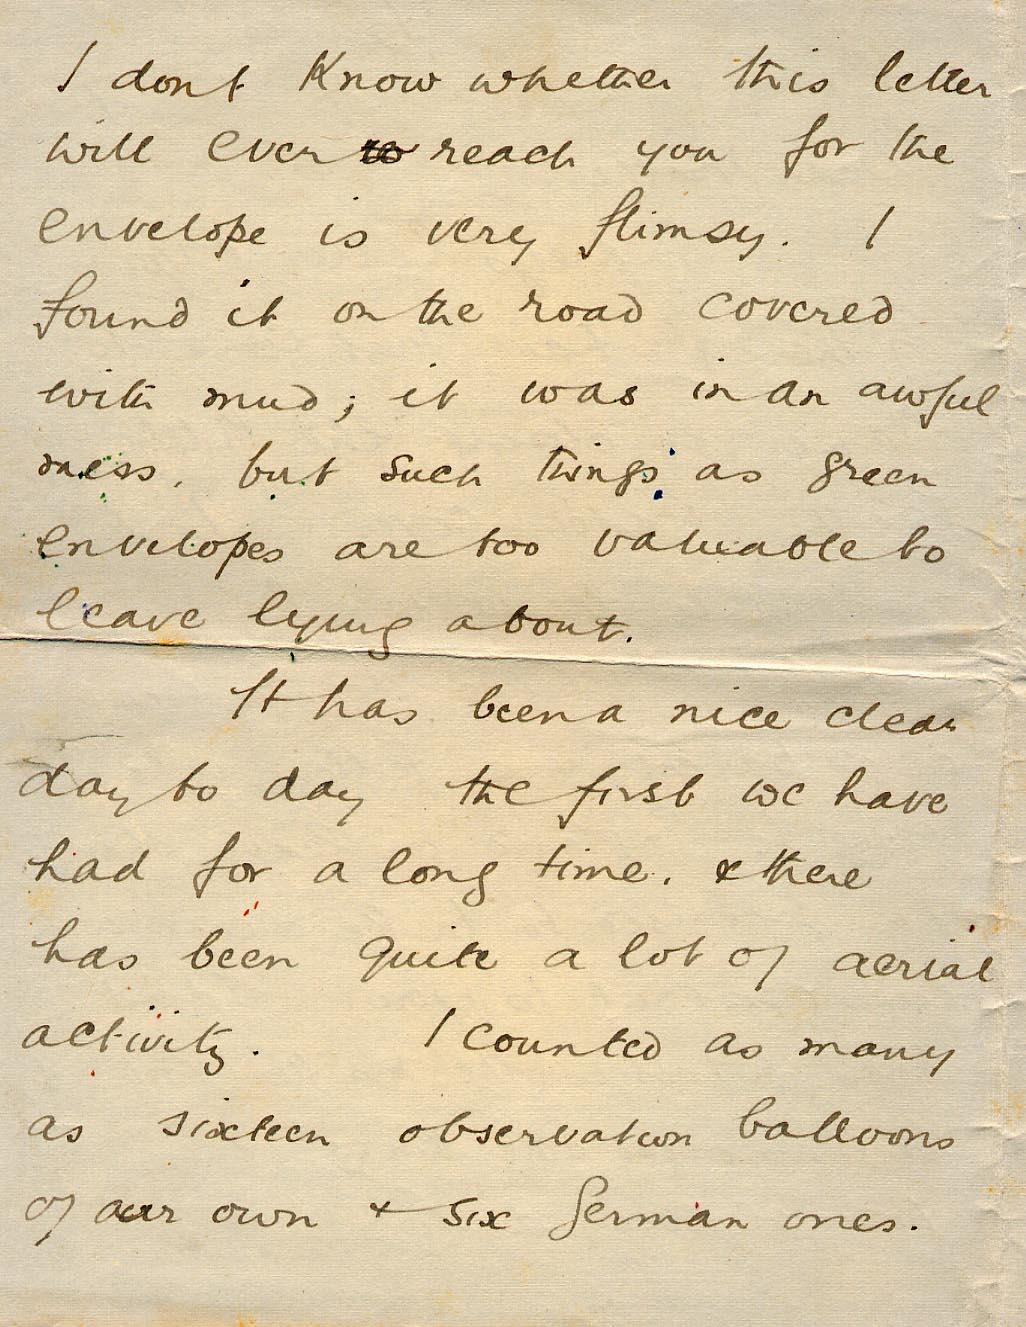 I dont know whether this letter
will ever to reach you for the
envelope is very flimsy. I
found it on the road covered
with mud; it was in an awful
mess, but such things as green
envelopes are too valuable to
leave lying about.
It has been a nice clear
day to day the first we have
had for a long time. & there
has been quite a lot of aerial
activity. I counted as many
as sixteen observation balloons
of our own & six German ones.